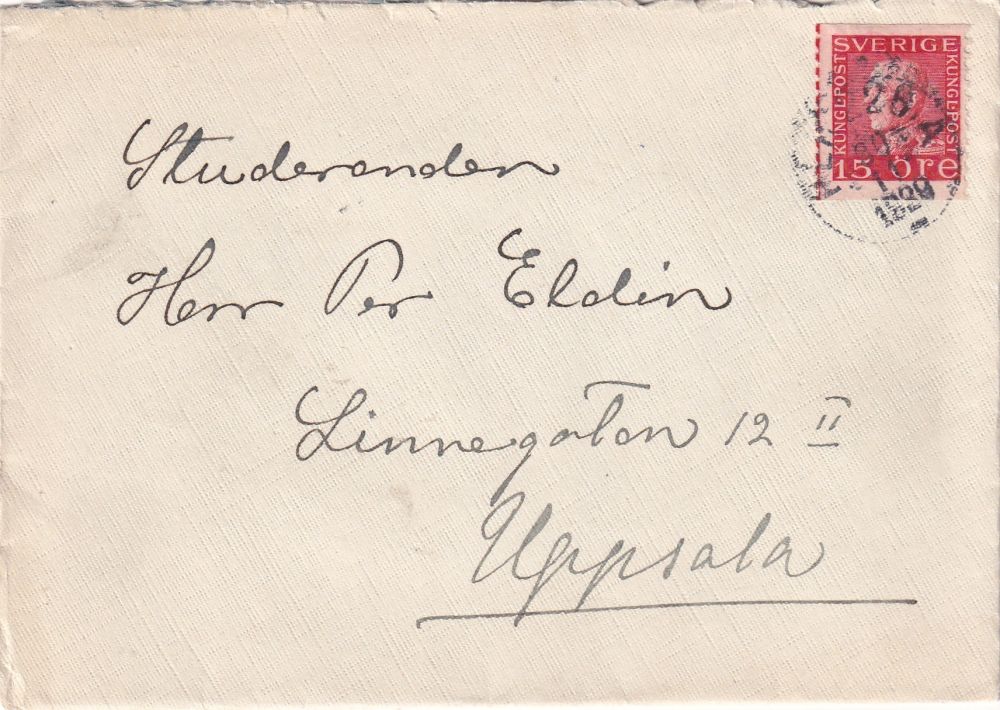 SVERIGE
KUNGL·POST
KUNGL·POST
15 ÖRE
26
1929
Studeranden
Herr Per Eldin
Linnegatan 12 II
Uppsala